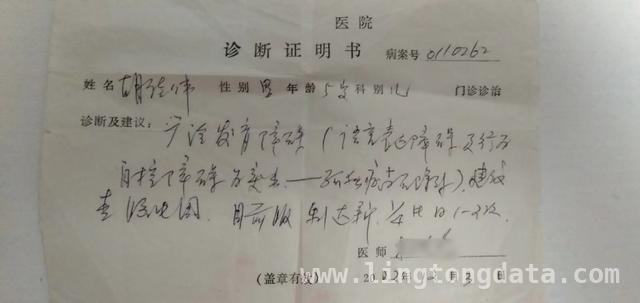 医院
诊断证明书 病案号 0110262
姓名 胡 伟 性别 男 年龄 5岁 科别 儿 门诊诊治
诊断及建议： 广泛发育障碍（语言表达障碍及行为
自控障碍为突出——孤独症 ）建议
查脑电图．目前服利达新， 日1-2次．
医师
（盖章有效） 20 年 月 日
www.lingtongdata.com